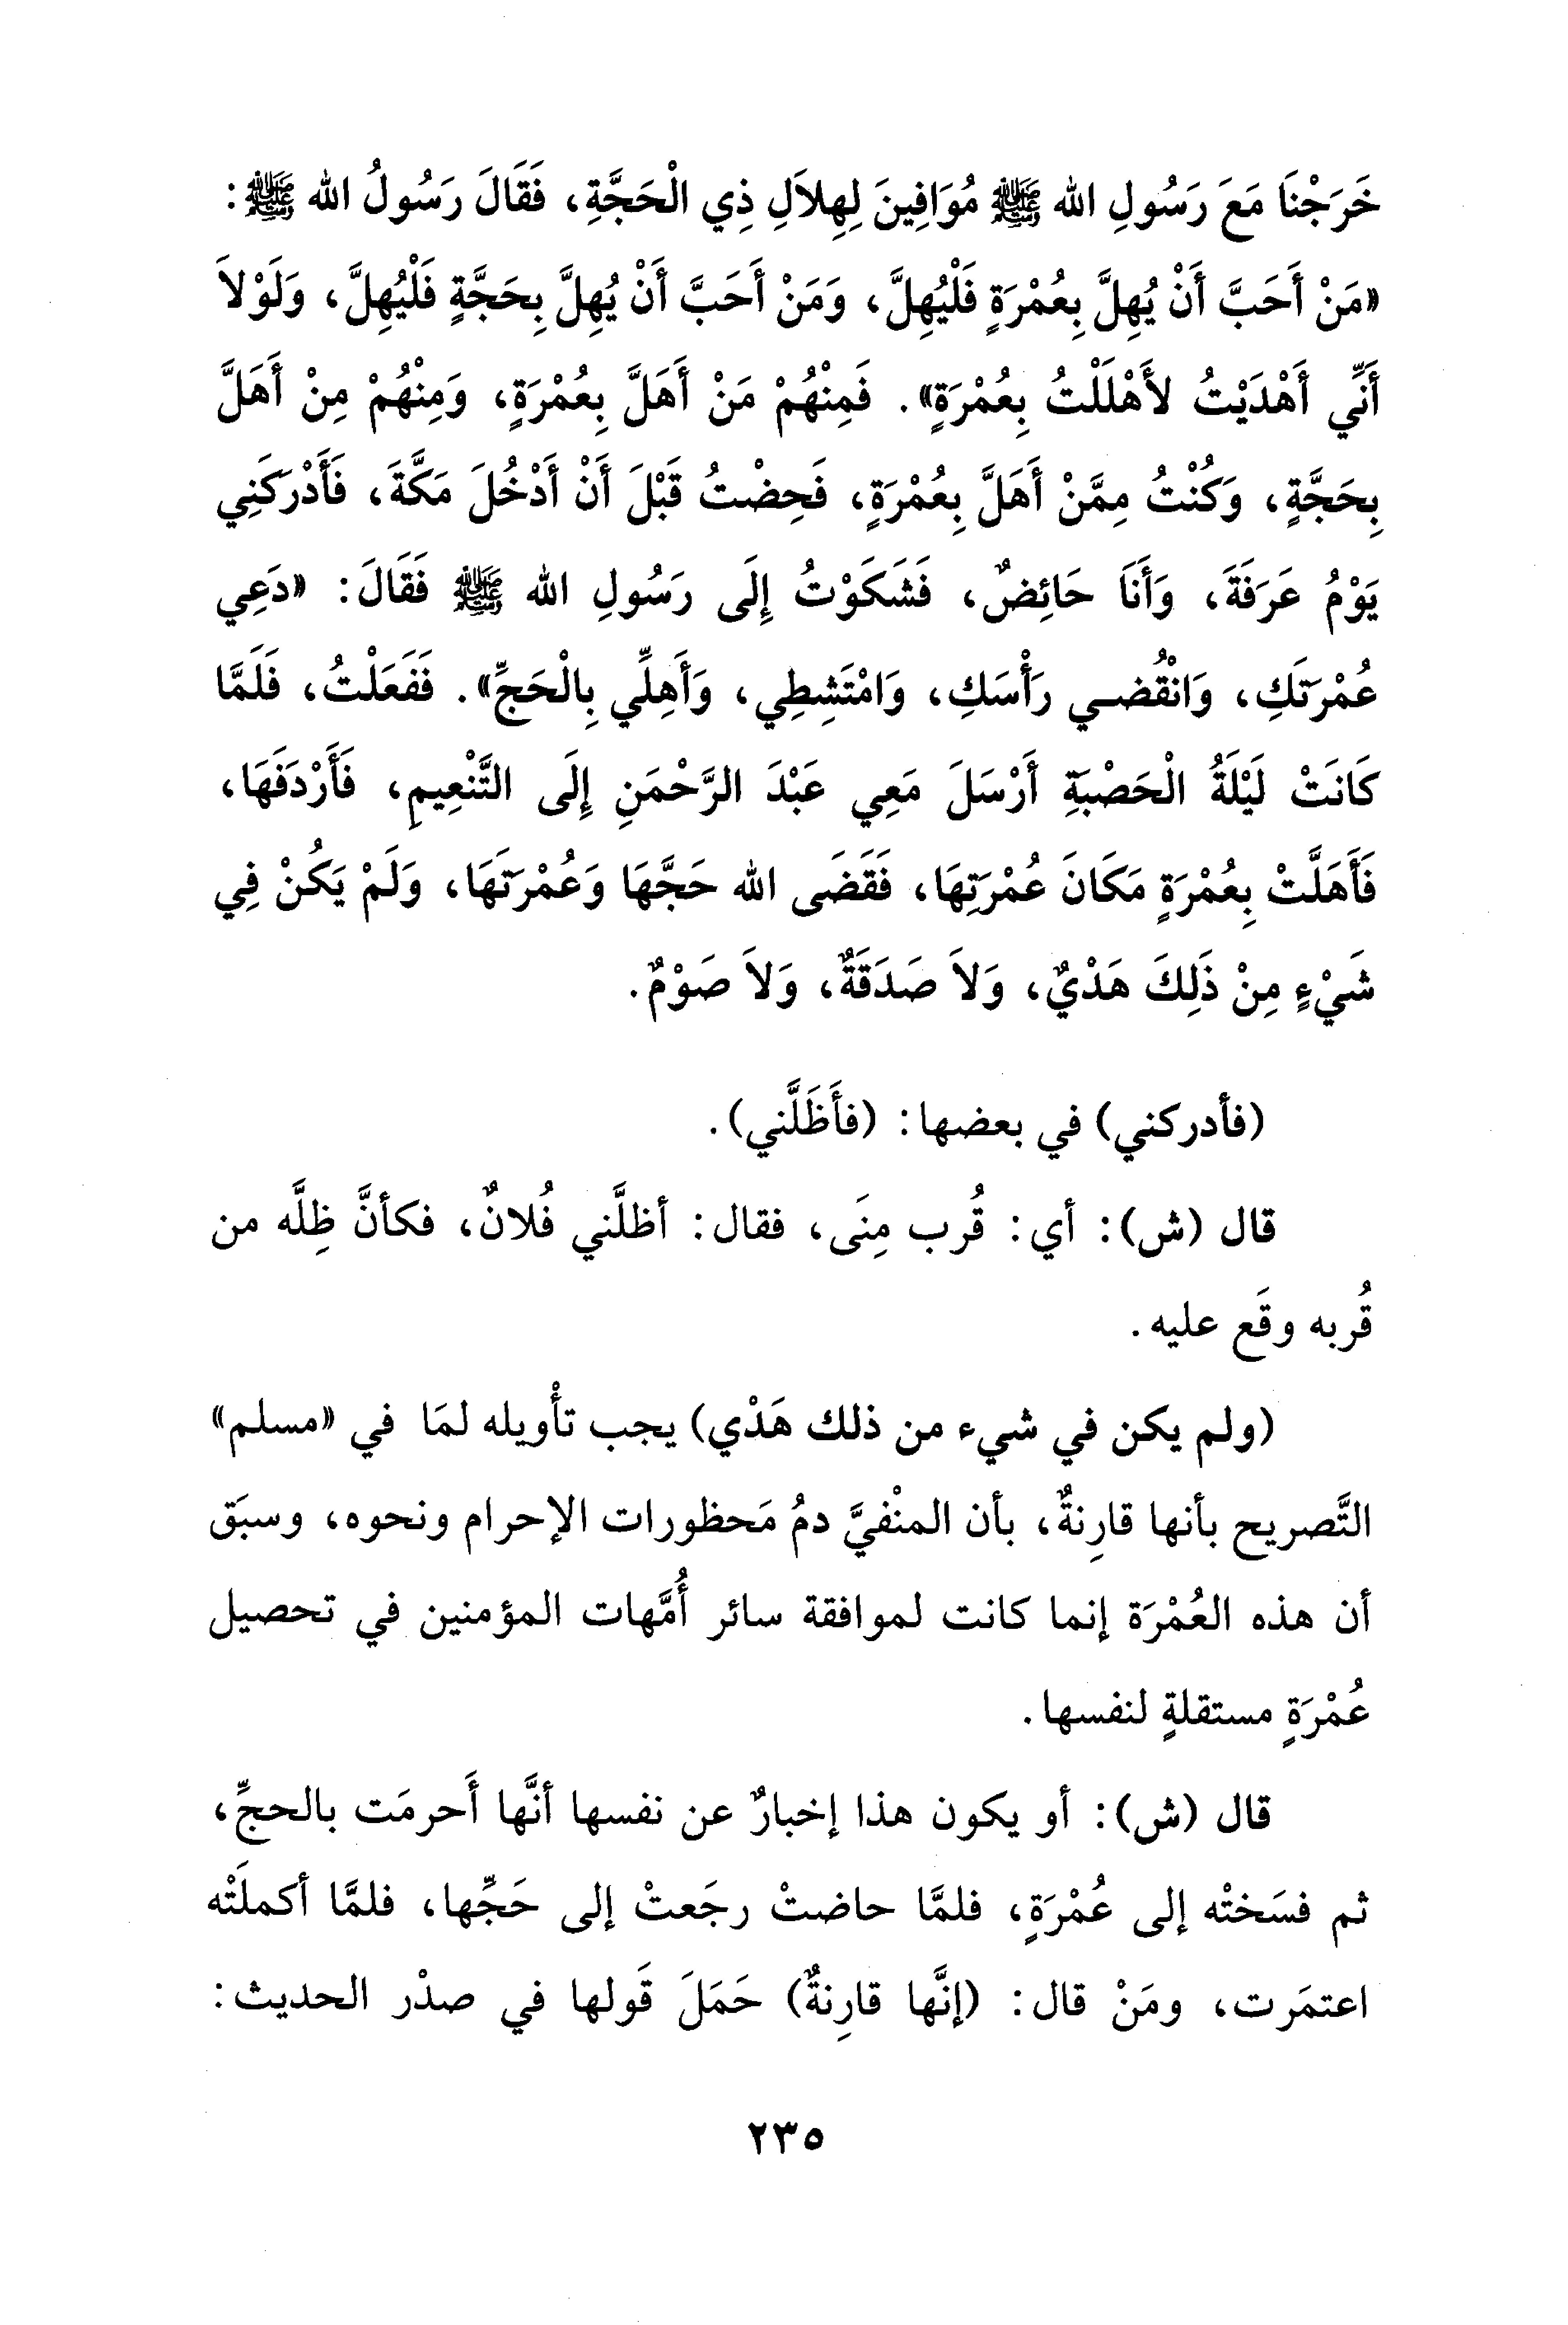 خَرَجْنَا مَعَ رَسُولِ الله ﷺ مُوَافِينَ لِهِلاَلِ ذِي الْحَجَّةِ، فَقَالَ رَسُولُ الله ﷺ:
«مَنْ أَحَبَّ أَنْ يُهِلَّ بِعُمْرَةٍ فَلْيُهِلَّ، وَمَنْ أَحَبَّ أَنْ يُهِلَّ بِحَجَّةٍ فَلْيُهِلَّ، وَلَوْلاَ
أَنِّي أَهْدَيْتُ لأَهْلَلْتُ بِعُمْرَةٍ». فَمِنْهُمْ مَنْ أَهَلَّ بِعُمْرَةٍ، وَمِنْهُمْ مِنْ أَهَلَّ
بِحَجَّةٍ، وَكُنْتُ مِمَّنْ أَهَلَّ بِعُمْرَةٍ، فَحِضْتُ قَبْلَ أَنْ أَدْخُلَ مَكَّةَ، فَأَدْرَكَنِي
يَوْمُ عَرَفَةَ، وَأَنَا حَائِضٌ، فَشَكَوْتُ إِلَى رَسُولِ الله ﷺ فَقَالَ: «دَعِي
عُمْرَتَكِ، وَانْقُضِي رَأْسَكِ، وَامْتَشِطِي، وَأَهِلِّي بِالْحَجِّ». فَفَعَلْتُ، فَلَمَّا
كَانَتْ لَيْلَةُ الْحَصْبَةِ أَرْسَلَ مَعِي عَبْدَ الرَّحْمَنِ إِلَى التَّنْعِيمِ، فَأَرْدَفَهَا،
فَأَهَلَّتْ بِعُمْرَةٍ مَكَانَ عُمْرَتِهَا، فَقَضَى الله حَجَّهَا وَعُمْرَتَهَا، وَلَمْ يَكُنْ فِي
شَيْءٍ مِنْ ذَلِكَ هَدْيٌ، وَلاَ صَدَقَةٌ، وَلاَ صَوْمٌ.
(فأدركني) في بعضها: (فأَظَلَّني).
قال (ش): أي: قُرب مِنَى، فقال: أظلَّني فُلانٌ، فكأنَّ ظِلَّه من
قُربه وقَع عليه.
(ولم يكن في شيء من ذلك هَدْي) يجب تأْويله لمَا في «مسلم»
التَّصريح بأنها قارِنةٌ، بأن المنْفيَّ دمُ مَحظورات الإحرام ونحوه، وسبَق
أن هذه العُمْرَة إنما كانت لموافقة سائر أُمَّهات المؤمنين في تحصيل
عُمْرَةٍ مستقلةٍ لنفسها.
قال (ش): أو يكون هذا إخبارٌ عن نفسها أنَّها أَحرمَت بالحجِّ،
ثم فسَختْه إلى عُمْرَةٍ، فلمَّا حاضتْ رجَعتْ إلى حَجِّها، فلمَّا أكملَتْه
اعتمَرت، ومَنْ قال: (إنَّها قارِنةٌ) حَمَلَ قَولها في صدْر الحديث:
٢٣٥